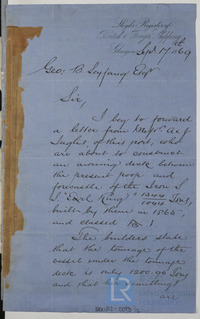 Lloyd's Register of
British & Foreign Shipping
Glasgow Sept 17th 1869
Geo. B. Seyfang Esqre
Sir,
I beg to forward
a letter from Messrs A & J
Inglis of this port, who
are about to construct
an awning deck between
the present poop and
forecastle of the Iron S
S "Earl King" Tons,
built by them in 1865
and classed
The Builders state
that the tonnage of the
vessel under the tonnage
deck is only 1200.96 Tons
and that the scantlings
are
LR